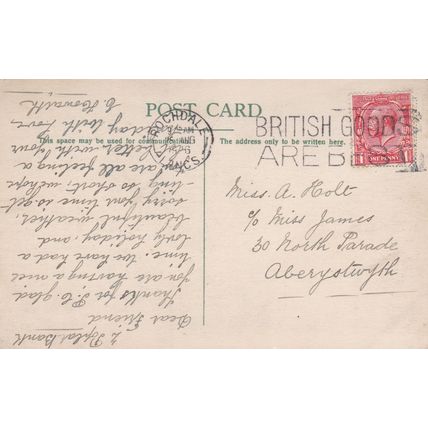 POST CARD
This space may be used for communication.
The address only to be written here.
ROCHDALE
LANCS.
AM
AUG
26
BRITISH GOODS
ARE B
ONE PENNY
Miss. A. Holt
c/o Miss James
30 North Parade
Aberystwyth
2 Bank
Dear Friend
thanks for P.C. glad
you are having a nice
time. We have had a
lovly holiday and
beautiful weather,
sorry your time is get
-ting so short, we hope
you are all feeling a
better for your
holiday with love,
E Howarth